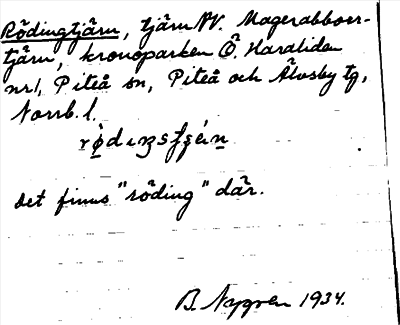 Rödingtjärn, tjärn NV. Magerabborr-
tjärn, kronoparken Ö. Haraliden
nr 1, Piteå sn, Piteå och Älvsby tg,
Norrb. l.
det finns "röding" där.
B. Nygren 1934.